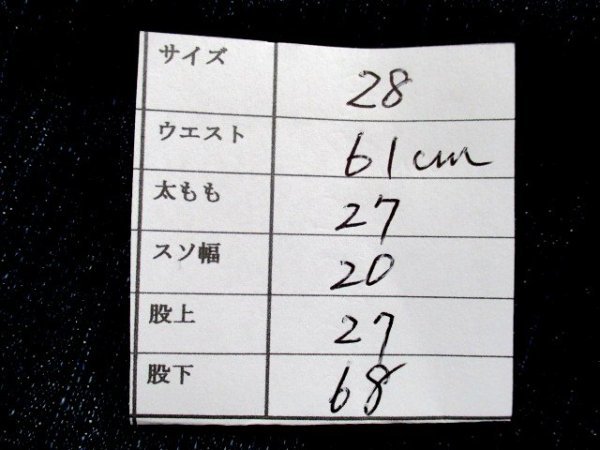 サイズ 28
ウエスト 61cm
太もも 27
スソ幅 20
股上 27
股下 68